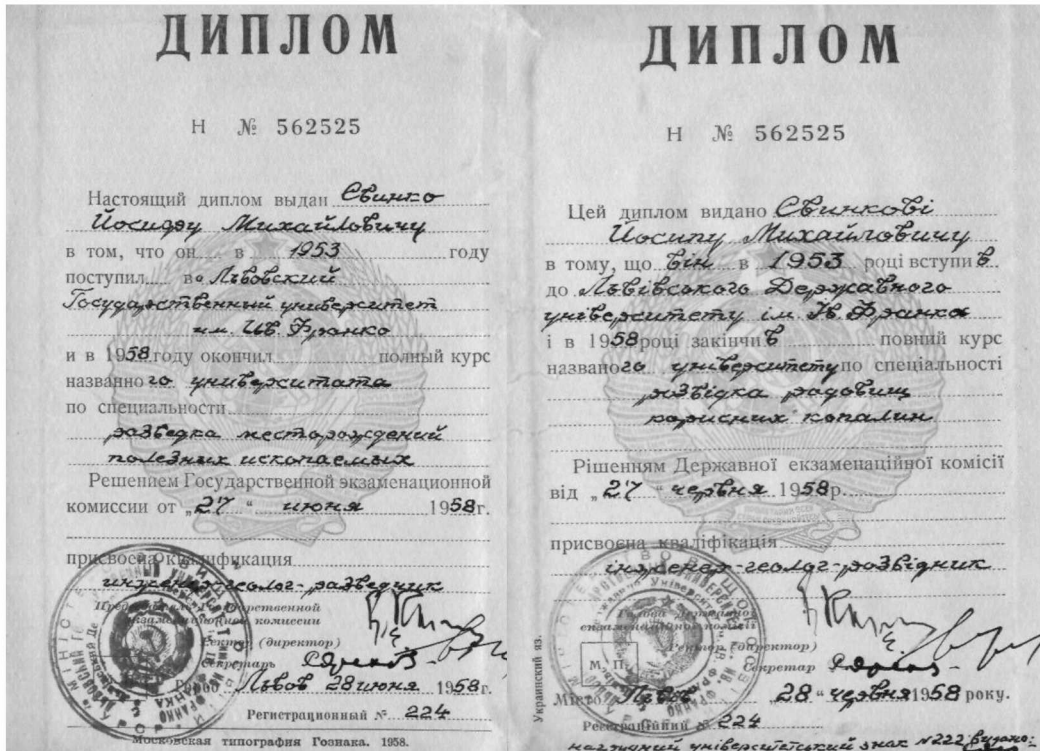 ДИПЛОМ
Н № 562525
Настоящий диплом выдан Свинко
Йосифу Михайловичу
в том, что он в 1953 году
поступил во Львовский
Государственный университет
им. Ив. Франко
и в 1958 году окончил полный курс
названного университата
по специальности
разведка месторождений
полезных ископаемых
Решением Государственной экзаменационной
комиссии от „27“ июня 1958г.
присвоена квалификация
инженер-геолог-разведчик
Председатель Государственной
экзаменационной комиссии
Ректор (директор)
Секретарь
Город Львов 28 июня 1958г.
Регистрационный № 224
Московская типография Гознака. 1958.
ДИПЛОМ
Н № 562525
Цей диплом видано Свинкові
Йосипу Михайловичу
в тому, що він в 1953 році вступив
до Львівського Державного
університету ім. Ів. Франка
і в 1958 році закінчив повний курс
названого університету по спеціальності
розвідка родовищ
корисних копалин
Рішенням Державної екзаменаційної комісії
від „27“ червня 1958р.
присвоєна кваліфікація
інженер-геолог-розвідник
Голова Державної
екзаменаційної комісії
Ректор (директор)
Секретар
М. П.
Місто Львів „28“ червня 1958 року.
Реєстраційний № 224
Украинский яз.
нагрудний університетський знак №222 видано: